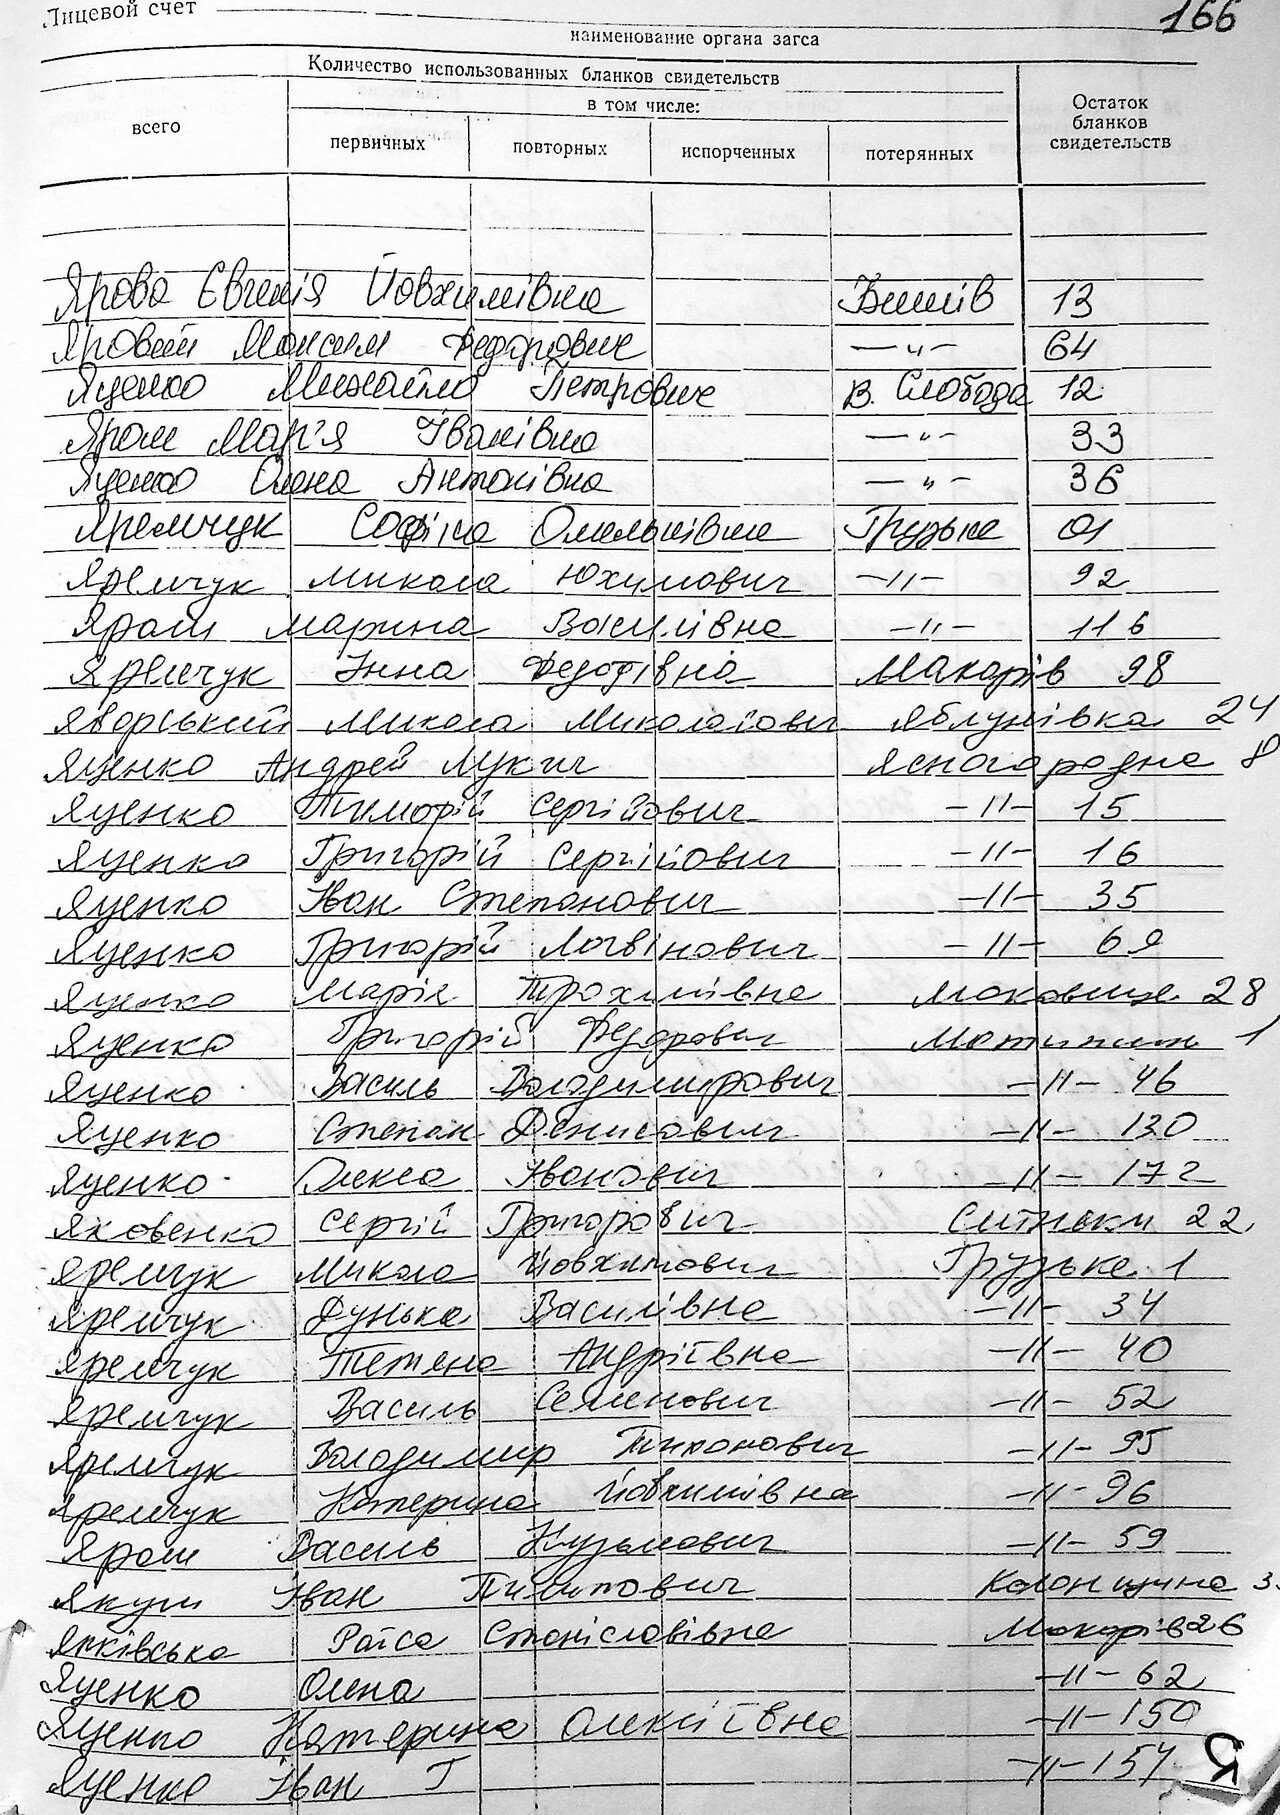 Лицевой счет
166
наименование органа загса
Количество использованных бланков свидетельств
в том числе:
всего
первичных повторных испорченных потерянных
Остаток бланков свидетельств
Ярова Євгенія Йовхимівна 13
Яровий Максим Федорович —"— 64
Яценко Михайло Петрович В. Слобода 12
Ярош Мар'я Іванівна —"— 33
Яценко Олена Антонівна —"— 36
Яремчук Софіна Омельнівна Грузьке 01
Яремчук Микола Юхимович —"— 92
Ярош Марина Василівна —"— 116
Яремчук Інна Федотівна Макарів 98
Яворський Микола Миколайович Яблунівка 24
Яценко Андрей Лукич Ясногородка 8
Яценко Тимофій Сергійович —"— 15
Яценко Григорій Сергійович —"— 16
Яценко Іван Степанович —"— 35
Яценко Григорій Логвінович —"— 69
Яценко Марія Трохимівна Маковище 28
Яценко Григорій Федорович Мотижин 1
Яценко Василь Володимирович —"— 46
Яценко Степан Денисович —"— 130
Яценко Олекса Іванович —"— 172
Яковенко Сергій Григорович Ситняки 22
Яремчук Микола Йовхимович Грузьке 1
Яремчук Дунька Василівна —"— 34
Яремчук Тетяна Андріївна —"— 40
Яремчук Василь Семенович —"— 52
Яремчук Володимир Тихонович —"— 95
Яремчук Катерина Йовхимівна —"— 96
Ярош Василь Кузьмович —"— 59
Якуш Іван Пилипович Колонщина 3
Раїса Станіславівна Макарів 26
Яценко Олена —"— 62
Яценко Катерина Олексіївна —"— 150
Яценко Іван Т —"— 157
Я